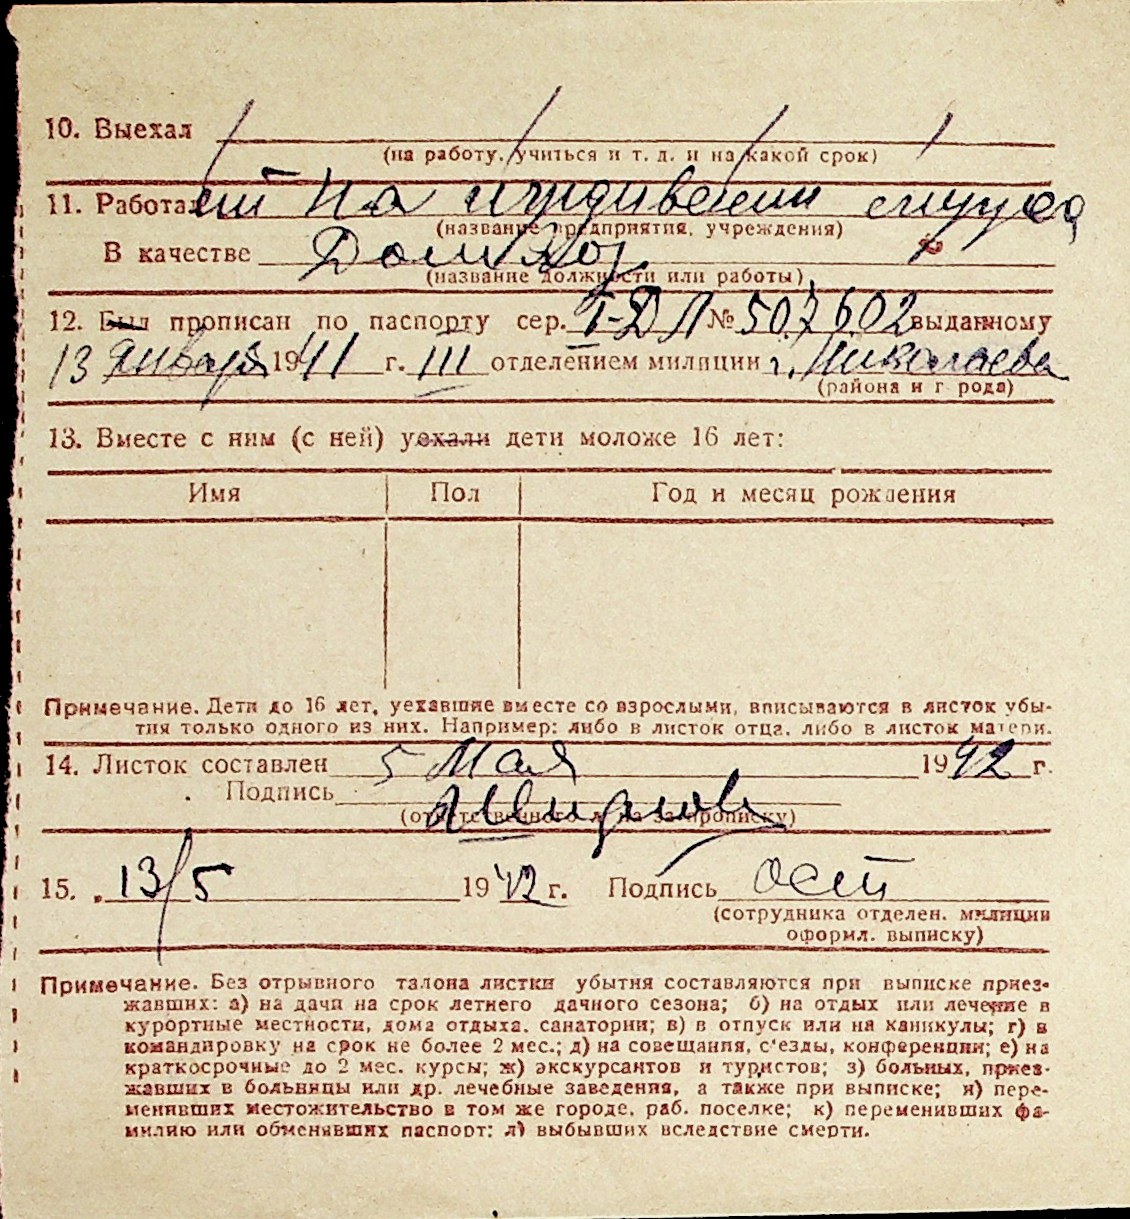 10. Выехал
(на работу, учиться и т. д. и на какой срок)
11. Работает На иждивении мужа
(название предприятия, учреждения)
В качестве Дом/хоз
(название должности или работы)
12. Был прописан по паспорту сер. I-ДЛ № 507602 выданному
13 Января 1941 г. III отделением милиции г. Николаева
(района и г рода)
13. Вместе с ним (с ней) уехали дети моложе 16 лет:
Имя Пол Год и месяц рождения
Примечание. Дети до 16 лет, уехавшие вместе со взрослыми, вписываются в листок убы-
тия только одного из них. Например: либо в листок отца, либо в листок матери.
14. Листок составлен 5 Мая 1942 г.
Подпись
(ответственного л на за прописку)
15. 13/5 1942 г. Подпись
(сотрудника отделен. милиции
оформл. выписку)
Примечание. Без отрывного талона листки убытия составляются при выписке приез-
жавших: а) на дачи на срок летнего дачного сезона; б) на отдых или лечение в
курортные местности, дома отдыха, санатории; в) в отпуск или на каникулы; г) в
командировку на срок не более 2 мес.; д) на совещания, с'езды, конференции; е) на
краткосрочные до 2 мес. курсы; ж) экскурсантов и туристов; з) больных, приез-
жавших в больницы или др. лечебные заведения, а также при выписке; и) пере-
менивших местожительство в том же городе, раб. поселке; к) переменивших фа-
милию или обменявших паспорт; л) выбывших вследствие смерти.